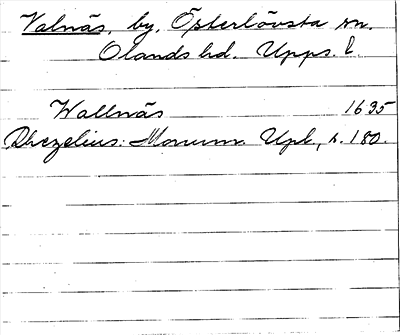 Valnäs, by, Österlövsta sn.
Olands hd. Upps. l.
Wallnäs 1635
Rhezelius: Monum. Upl., s. 180.